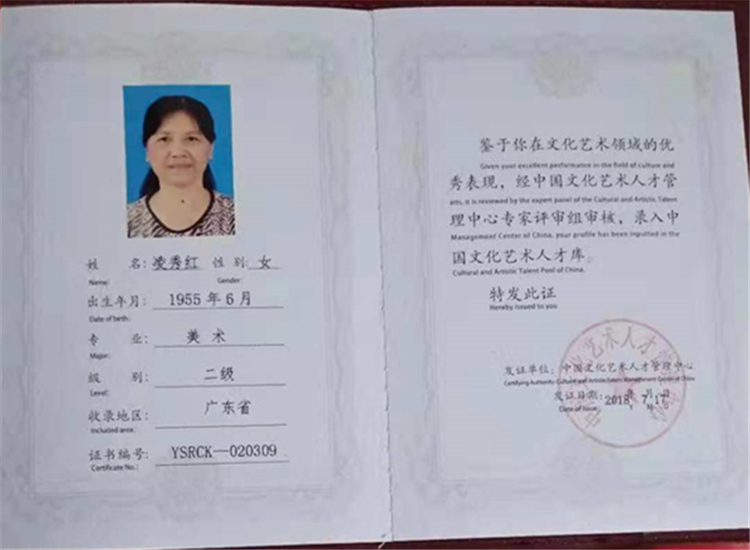 姓 名: 凌秀红 性 别: 女
Name: Gender:
出生年月: 1955 年 6 月
Date of birth:
专 业: 美 术
Major:
级 别: 二级
Level:
收录地区: 广东省
Included area:
证书编号: YSRCK—020309
Certificate No.:
鉴于你在文化艺术领域的优
Given your excellent performance in the field of culture and
秀表现，经中国文化艺术人才管
arts, it is reviewed by the expert panel of the Cultural and Artistic Talent
理中心专家评审组审核，录入中
Management Center of China, your profile has been inputted in the
国文化艺术人才库。
Cultural and Artistic Talent Pool of China.
特发此证
Hereby issued to you
发证单位: 中国文化艺术人才管理中心
Certifying Authority: Cultural and Artistic Talent Management Center of China
发证日期: 2018 年 7 月 17 日
Date of Issue: Y M D